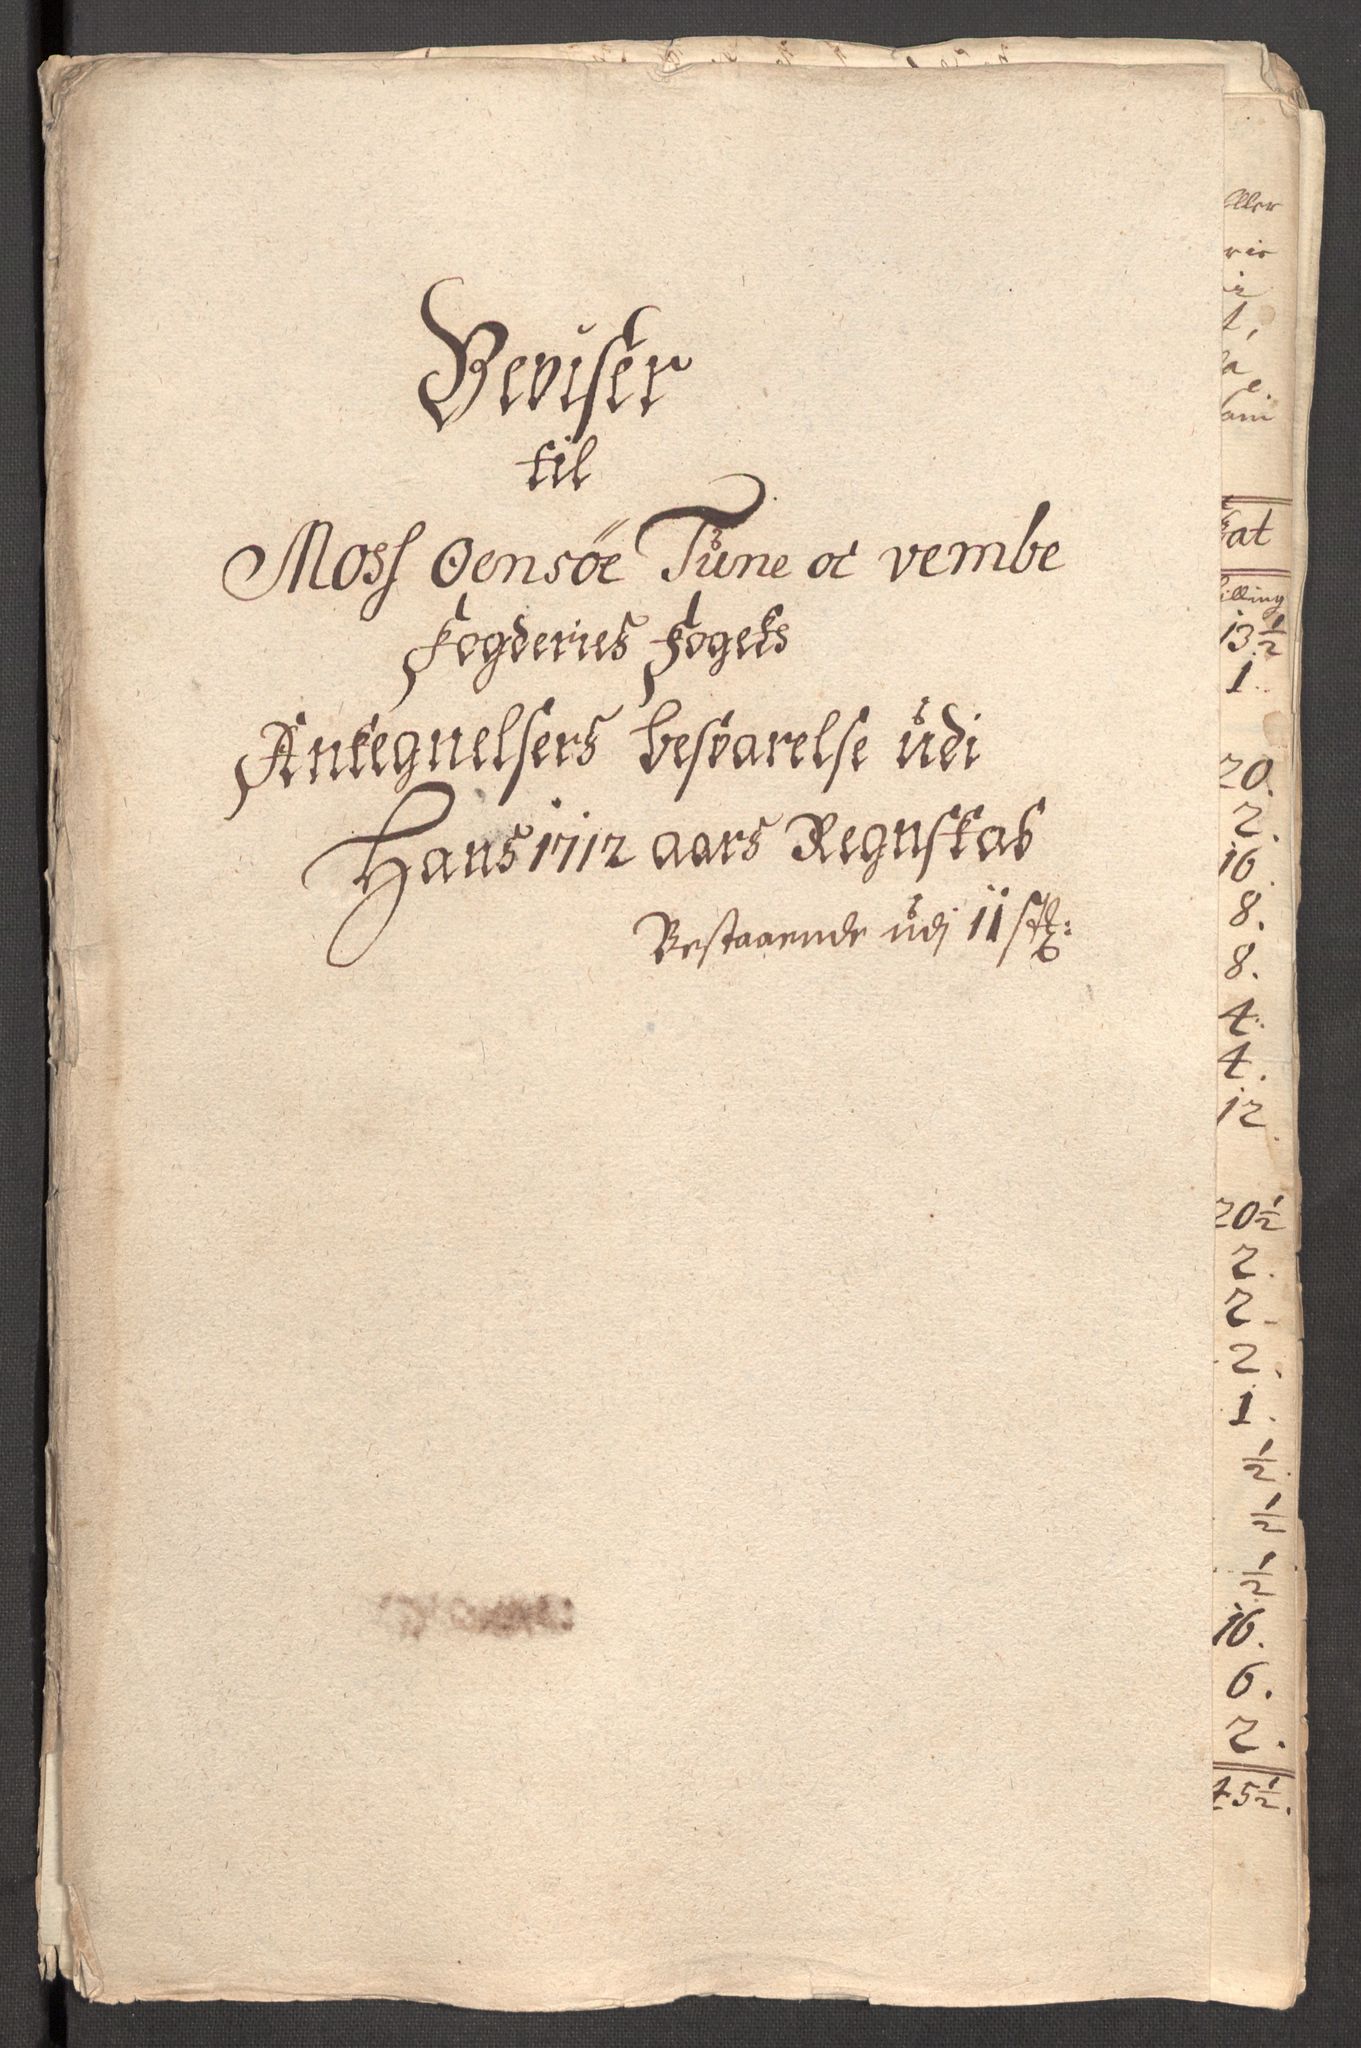 Beviser
til
Moss Oensöe Tune oc vembe
fogderies fogets
Antegnelsers besvarelse udi
Hans 1712 aars Regnskab
Bestaaende udj 11 st:
ller
am
at
illing
13½
1.
20.
2.
16.
8.
8.
4.
4.
12.
20½
2.
2.
2.
1.
½
½
½
16.
6.
2.
45½.